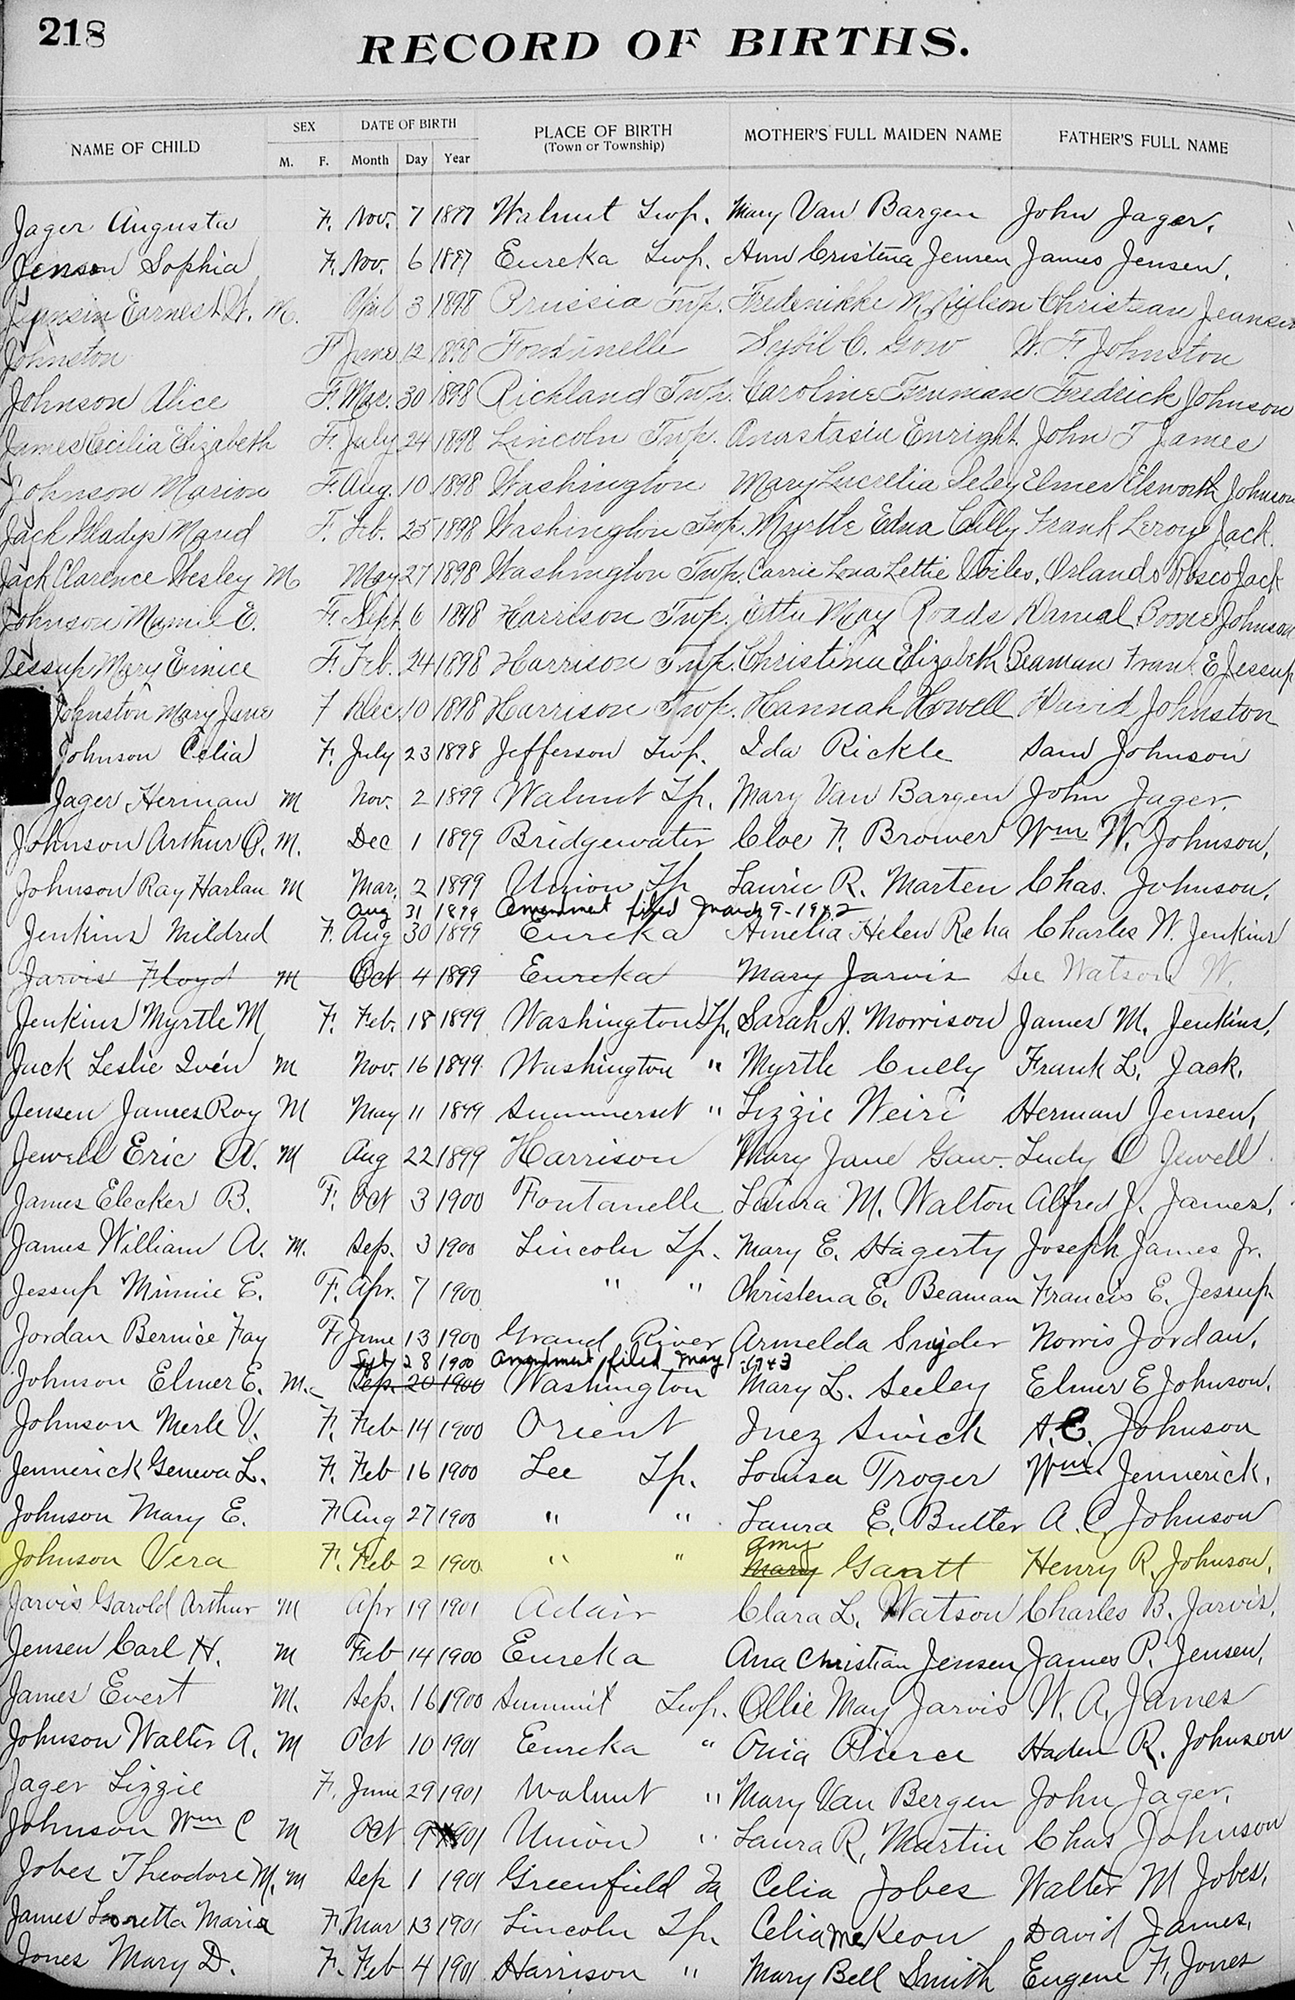 218
RECORD OF BIRTHS.
NAME OF CHILD SEX DATE OF BIRTH PLACE OF BIRTH MOTHER'S FULL MAIDEN NAME FATHER'S FULL NAME
M. F. Month Day Year (Town or Township)
Jager Augusta F. Nov. 7 1897 Walnut Twp. Mary Van Bargen John Jager.
Jensen Sophia F. Nov. 6 1897 Eureka Twp. Ann Cristena Jensen James Jensen.
Earnest W. M. April 3 1898 Prussia Twp. Fredenikke M. Christian
Johnston F June 12 1898 Fontinelle Sybil C. Gow W. F. Johnston
Johnson Alice F. Mar. 30 1898 Richland Twp. Caroline Fredrick Johnson
James Cecilia Elizabeth F. July 24 1898 Lincoln Twp. Anastasia Enright John T James
Johnson Marion F. Aug. 10 1898 Washington Mary Lucretia Seley Elmer Elsworth Johnson
Jack Gladys Maud F. Feb. 25 1898 Washington Twp. Myrtle Edna Cully Frank Leroy Jack.
Jack Clarence Wesley M May 27 1898 Washington Twp. Carrie Lettie Orlando Rosco Jack
Johnson Mamie E. F. Sept 6 1898 Harrison Twp. Etta May Roads Daniel Boone Johnson
Jessup Mary Eunice F. Feb. 24 1898 Harrison Twp. Christina Elizabeth Beaman Frank E Jessup
Johnston Mary Jane F Dec 10 1898 Harrison Twp. Hannah Howell David Johnston
Johnson Celia F. July 23 1898 Jefferson Twp. Ida Rickle Sam Johnson
Jager Herman M Nov. 2 1899 Walnut Tp. Mary Van Bargen John Jager.
Johnson Arthur O. M. Dec 1 1899 Bridgewater Cloe F. Brower Wm W. Johnson.
Johnson Ray Harlan M Mar. 2 1899 Union Tp Laurie R. Marten Chas. Johnson.
Aug 31 1899 Amendment filed March 9-1942
Jenkins Mildred F. Aug 30 1899 Eureka Amelia Helen Reha Charles W. Jenkins
Jarvis Floyd M Oct 4 1899 Eureka Mary Jarvis See Watson W.
Jenkins Myrtle M F. Feb. 18 1899 Washington Tp. Sarah A. Morrison James M. Jenkins.
Jack Leslie Iven M Nov. 16 1899 Washington " Myrtle Cully Frank L. Jack.
Jensen James Roy M May 11 1899 Summerset " Lizzie Weiri Herman Jensen,
Jewell Eric A. M Aug 22 1899 Harrison Mary Jane Gaw. Ludy O Jewell
James Elecker B. F. Oct 3 1900 Fontanelle Laura M. Walton Alfred J. James.
James William A. M. Sep. 3 1900 Lincoln Tp. Mary E. Hagerty Joseph James Jr.
Jessup Minnie E. F. Apr. 7 1900 " " Christena E. Beaman Francis E. Jessup
Jordan Bernice Fay F. June 13 1900 Grand River Armelda Snyder Norris Jordan.
Sept 28 1900 Amendment filed May 1943
Johnson Elmer E. M. Sep. 20 1900 Washington Mary L. Seeley Elmer E Johnson.
Johnson Merle V. F. Feb 14 1900 Orient Inez Swick A. E. Johnson
Jennerick Geneva L. F. Feb 16 1900 Lee Tp. Louisa Troger Wm. Jennerick.
Johnson Mary E. F Aug 27 1900 " " Laura E. Butler A. C. Johnson
Amy
Johnson Vera F. Feb 2 1900 " " Mary Gantt Henry R. Johnson.
Jarvis Garold Arthur M Apr 19 1901 Adair Clara L. Watson Charles B. Jarvis.
Jensen Carl H. M Feb 14 1900 Eureka Ana Christian Jensen James P. Jensen,
James Evert M. Sep. 16 1900 Summit Twp. Ollie May Jarvis W. A. James
Johnson Walter A. M Oct 10 1901 Eureka " Onia Pierce Haden R. Johnson
Jager Lizzie F. June 29 1901 Walnut " Mary Van Bergen John Jager.
Johnson Wm C M Oct 9 1901 Union " Laura R. Martin Chas Johnson
Jobes Theodore M. M Sep 1 1901 Greenfield Ia Celia Jobes Walter M Jobes.
James Loretta Maria F. Mar 13 1901 Lincoln Tp. Celia McKeon David James.
Jones Mary D. F. Feb 4 1901 Harrison " Mary Bell Smith Eugene F. Jones